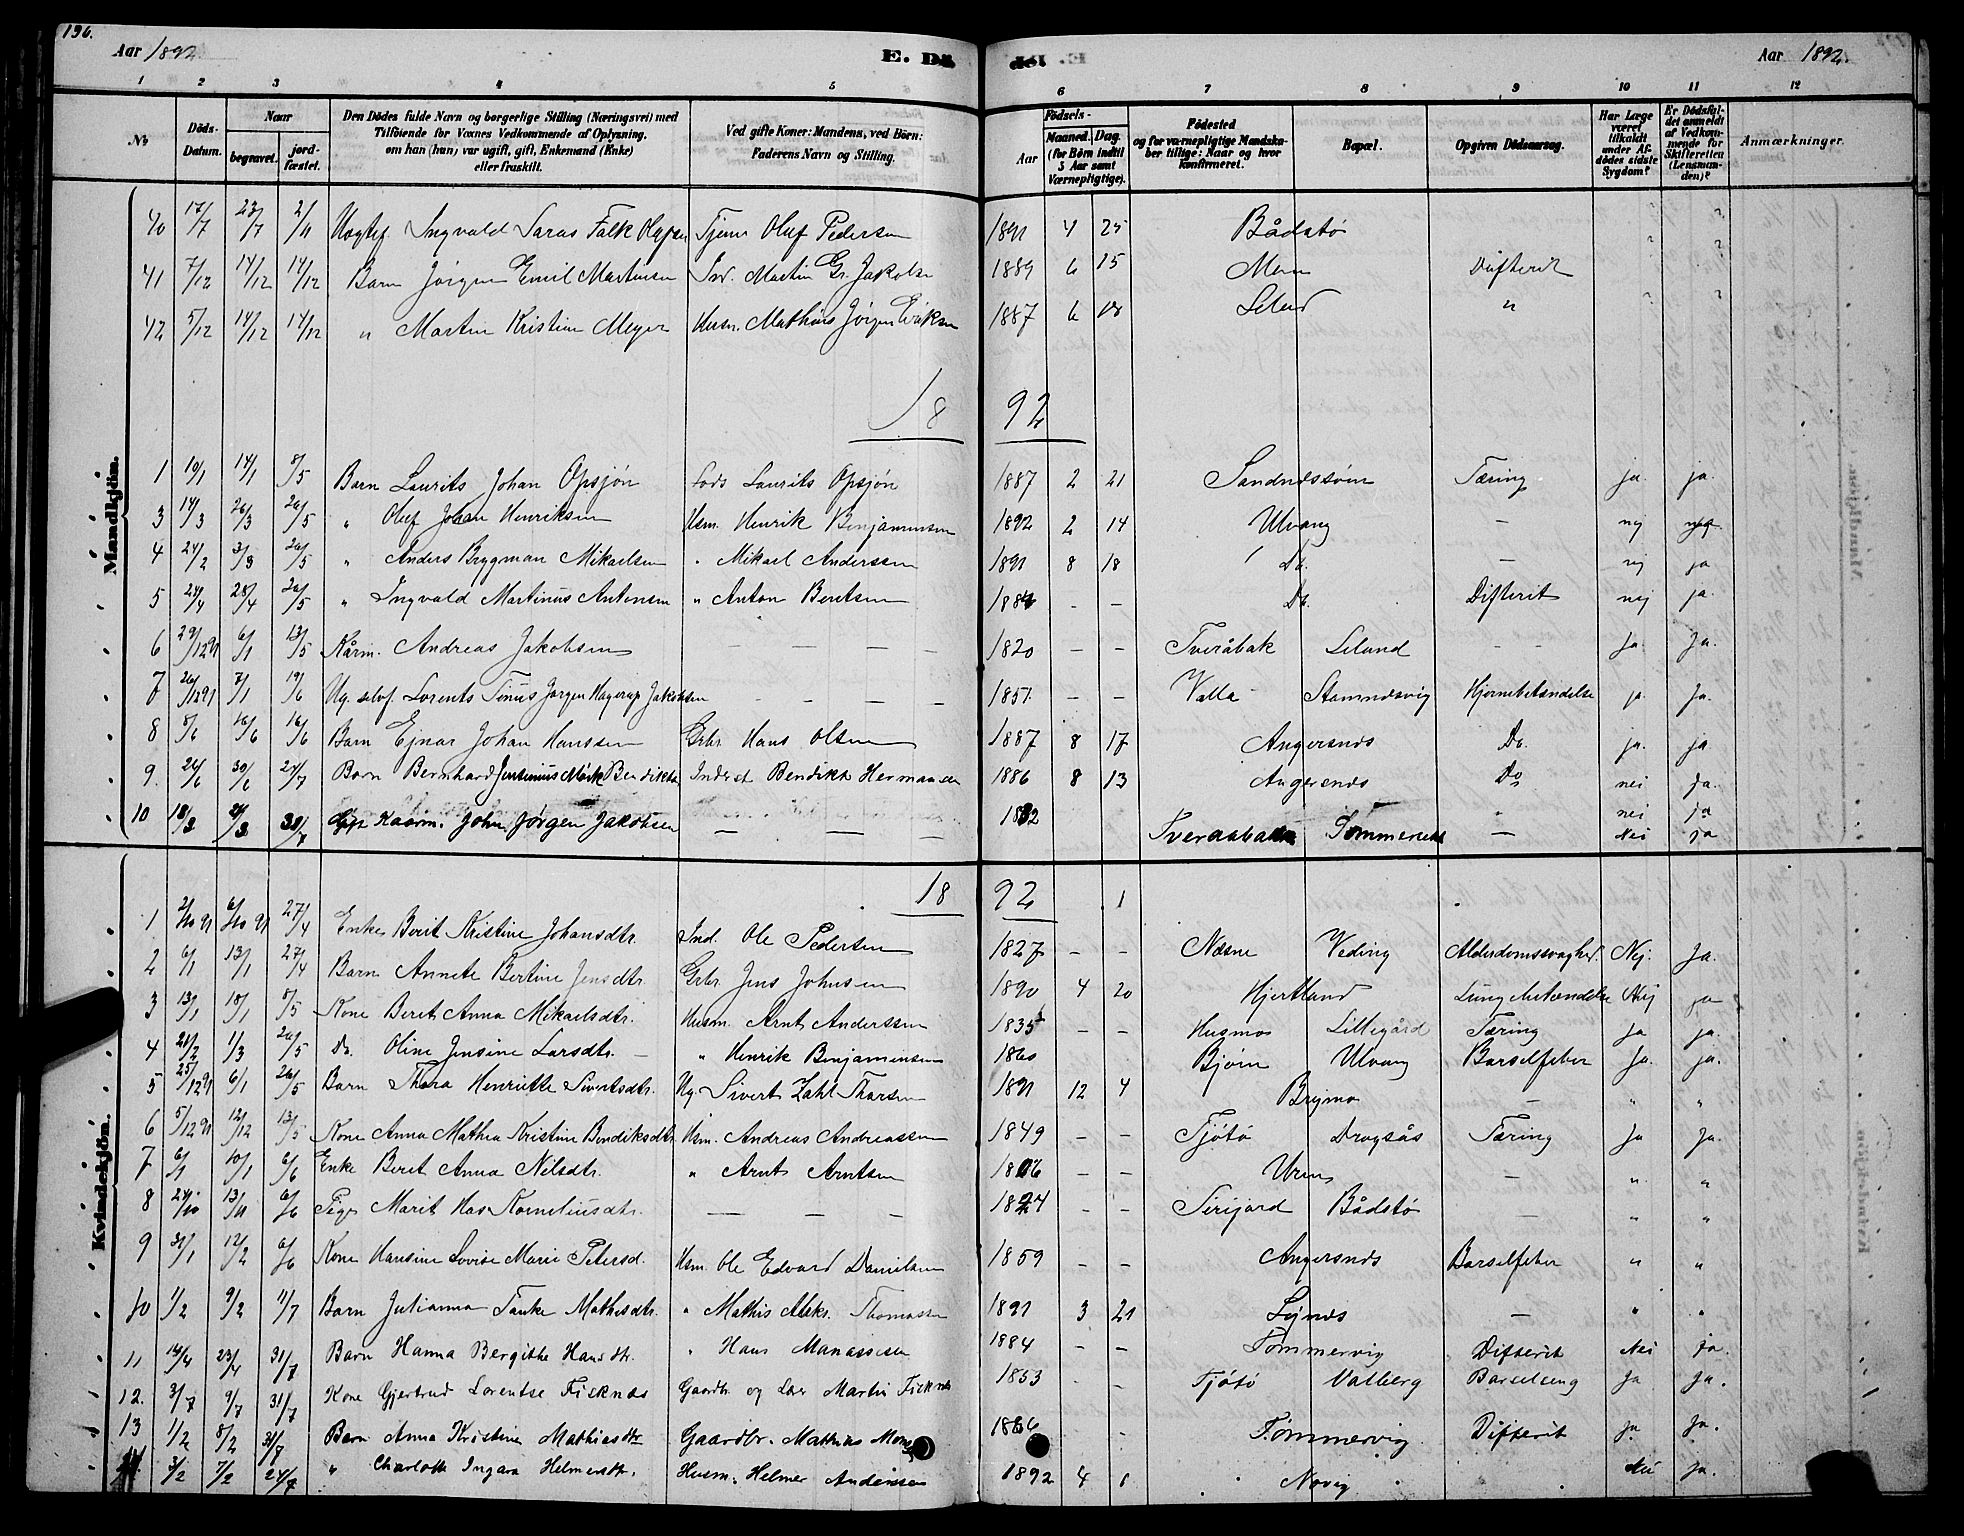 196.
Aar 1892
E. Dö
de.
Aar 1892.
1 2 3 4 5 6 7 8 9 10 11 12
No
Döds-Datum.
Naar
begravet.
jordfæstet.
Den Dödes fulde Navn og borgerlige Stilling (Næringsvei) med
Tilföiende for Voxnes Vedkommende af Oplysning,
om han (hun) var ugift, gift, Enkemand (Enke)
eller fraskilt.
Ved gifte Koner: Mandens, ved Börn:
Faderens Navn og Stilling.
Födsels-
Aar
Maaned. Dag.
(for Börn indtil
5 Aar samt
Værnepligtige).
Födested
og for værnepligtige Mandska-
ber tillige: Naar og hvor
konfirmeret.
Bopæl.
Opgiven Dödsaarsag.
Har Læge
været
tilkaldt
under Af-
dödes sidste
Sygdom?
Er Dödsfal-
det anmeldt
af Vedkom-
mende for
Skifteretten
(Lensman-
den)?
Anmærkninger.
Mandkjön.
40 17/7 23/7 2/11 Ingvald Saras Falk Tjener Oluf Pedersen 1891 4 25 Bådstø
41 7/12 14/12 14/12 Barn Jörgen Emil Martinsen Ind. Martin Gr. Jakobs 1889 6 15 Difterit
42 5/12 14/12 14/12 " Martin Kristian Meyer Husm. Mathias Jörgen Eriksen 1887 6 18 Leland "
1892
1 10/1 14/1 8/5 Barn Laurits Johan Opsjön Lods Laurits Opsjön 1887 2 21 Tæring ja. ja.
3 14/3 26/3 26/5 " Oluf Johan Henriksen Husm. Henrik Benjaminsen 1892 2 14 Ulvang — nej
4 24/2 3/3 26/5 " Anders Brygman Mikaelsen " Mikael Anderssen 1891 8 18 Do. — nej ja
5 24/4 28/4 26/5 " Ingvald Martinus Antonsen " Anton Beritsen — — Do. Difterit nej ja.
6 29/12 91 6/1 13/5 Kårm. Andreas Jakobsen — — — 1820 — — Tveråbak Leland — ja. Ja.
7 26/12 91 7/1 19/6 Ug. selvf. Lorents Tinus Jörgen Hagerup Jakobsen — — — 1851. — — Valla Stamnesvig Hjernebetændelse ja. Ja.
8 8/6 16/6 16/6 Barn Ejnar Johan Hanssen Grbr. Hans Olsen 1887 8 17 Angersnes Do. ja. ja
9. 26/6 30/6 24/7 Barn Bernhard Jentinius Mörk Inderst Bendikt Hermansen 1886 8 13 Angersnes Do nei Ja.
10 18/3 John Jörgen Jakobsen — — — " nei ja
— Nei ja
Kvindekjön.
1892 1
1 2/10 91 6/10 91 27/4 Enke Berit Kristine Johansdtr. Ind. Ole Pedersen 1827 — — Næsne Veding Alderdomssvaghed. Nej. Ja.
2 6/1 13/1 27/4 Barn Annete Bertine Jensdtr. Grbr. Jens Johnsen 1890 4 20 Hjertland Lungebetændelse Nej ja
3 13/1 18/1 8/5 Kone Berit Anna Mikaelsdtr. Husm. Arnt Anderssen 1835 — — Husmo Lillegård Tæring ja ja.
4 20/2 1/3 26/5 Do. Oline Jensine Larsdtr. — " Henrik Benjaminsen 1860 Bjørn Ulvang Barselfeber Ja. ja.
5 25/12 91 6/1 26/5 Barn Thora Henriette Sivertsdtr. Ug. Sivert Zahl Thorsen 1891 12 4 Brymo — " "
6 5/12 91 12/12 13/5 Kone Anna Mathea Kristine Bendiksdtr. Husm. Andreas Andreassen 1849 — — Tjötö Dragsås Tæring ja Ja.
7 6/1 10/1 6/6 Enke Berit Anna Nilsdtr. " Arnt Arntsen — — — " "
8 24/10 13/11 6/6 Pige Marit Korneliusdtr. — — — 1824 — — Bådstø — " "
9 31/1 12/2 6/6 Kone Hansine Lovise Marie Petersd. Husm. Ole Edvard Danielsen 1859 — — Angersnes Barselfeber " "
10 1/2 9/2 11/7 Barn Julianna Tanke Mathisdtr. " Mathis Thomassen 1891 3 21 — " "
11 14/4 23/4 31/7 Barn Hanna Bergithe Hansdtr. " Hans Manassesen 1884 — — Tommervig Difterit Nei ja.
12. 3/7 9/7 31/7 Kone Gjertrud Lorentse Gaardbr. og Martin 1853 - - Tjötö Valberg Barselseng Ja Ja.
13 1/2 8/2 31/7 Barn Anna Kristine Mathiasdtr Gaardbr. Mathias - Tømmervig Difterit Ja Ja.
14 3/2 7/2 24/7 " Charlotte Ingara Helmersdtr. Husm. Helmer Anderssen 1892 4 6 Novig Nei Ja.